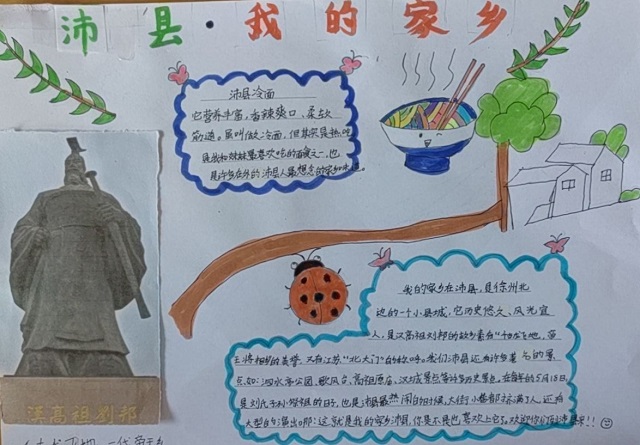 沛县·我的家乡
沛县冷面
它营养丰富,香辣爽口、柔软
筋道。虽叫做冷面,但其实是热吃
是我和妹妹最喜欢吃的面食之一,也
是许多在外的沛县人最想念的家乡味道。
我的家乡在沛县,是徐州北
边的一个小县城,它历史悠久、风光宜
人,是汉高祖刘邦的故乡素有"
王将相的美誉,又有江苏"北大门"的称呼。我们沛县还有许多著名的景
点如:泗水亭公园、歌风台、高祖原庙、汉城景点等许多历史景点,在每年的5月18日
是刘氏子孙祭祖的日子,也是沛县最热闹的时候,大街小巷都挤满了人还有
大型的演出哪!这就是我的家乡沛县,你是不是也喜欢上它了。欢迎你们
汉高祖刘邦